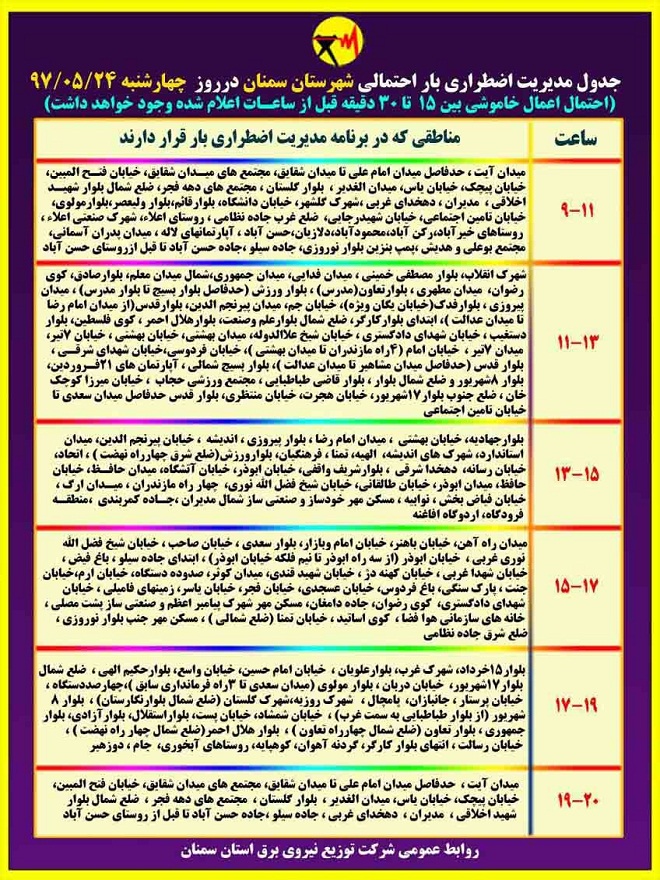 جدول مدیریت اضطراری بار احتمالی شهرستان سمنان درروز چهارشنبه ۹۷/۰۵/۲۴
(احتمال اعمال خاموشی بین ۱۵ تا ۳۰ دقیقه قبل از ساعات اعلام شده وجود خواهد داشت)
ساعت
مناطقی که در برنامه مدیریت اضطراری بار قرار دارند
۹-۱۱
میدان آیت ، حدفاصل میدان امام علی تا میدان شقایق، مجتمع های میدان شقایق، خیابان فتح المبین،
خیابان پیچک، خیابان یاس، میدان الغدیر ، بلوار گلستان ، مجتمع های دهه فجر، ضلع شمال بلوار شهید
اخلاقی ، مدیران ، دهخدای غربی ، شهرک گلشهر، خیابان دانشگاه، بلوارقائم،بلوار ولیعصر،بلوارمولوی،
خیابان تامین اجتماعی، خیابان شهیدرجایی، ضلع غرب جاده نظامی ، روستای اعلاء، شهرک صنعتی اعلاء ،
روستاهای خیرآباد،رکن آباد،محمودآباد،دلازیان،حسن آباد ، آپارتمانهای لاله ، میدان پدران آسمانی،
مجتمع بوعلی و هدیش ،پمپ بنزین بلوار نوروزی، جاده سیلو ،جاده حسن آباد تا قبل ازروستای حسن آباد
۱۱-۱۳
شهرک انقلاب، بلوار مصطفی خمینی ، میدان فدایی، میدان جمهوری،شمال میدان معلم، بلوارصادق، کوی
رضوان، میدان مطهری ، بلوارتعاون(مدرس) ، بلوار ورزش (حدفاصل بلوار بسیج تا بلوار مدرس) ، میدان
پیروزی ، بلوارفدک(خیابان یگان ویژه)، خیابان جم، میدان پیرنجم الدین، بلوارقدس(از میدان امام رضا
تا میدان عدالت )، ابتدای بلوارکارگر، ضلع شمال بلوارعلم وصنعت، بلوارهلال احمر ، کوی فلسطین، بلوار
دستغیب ، خیابان شهدای دادگستری ، خیابان شیخ علاالدوله، میدان بهشتی، خیابان بهشتی ، خیابان ۷تیر،
میدان ۷تیر ، خیابان امام (۴راه مازندران تا میدان بهشتی )، خیابان فردوسی،خیابان شهدای شرقی ،
بلوار قدس (حدفاصل میدان مشاهیر تا میدان عدالت )، بلوار بسیج شمالی ، آپارتمان های ۲۱فروردین،
بلوار ۸شهریور و ضلع شمال بلوار ، بلوار قاضی طباطبایی ، مجتمع ورزشی حجاب ، خیابان میرزا کوچک
خان ، ضلع جنوب بلوار۱۷شهریور، خیابان هجرت، خیابان منتظری، بلوار قدس حدفاصل میدان سعدی تا
خیابان تامین اجتماعی
۱۳-۱۵
بلوارجهادیه، خیابان بهشتی ، میدان امام رضا ، بلوار پیروزی ، اندیشه ، خیابان پیرنجم الدین، میدان
استاندارد، شهرک های اندیشه، الهیه، تمنا ، فرهنگیان، بلوارورزش(ضلع شرق چهارراه نهضت ) ، اتحاد،
خیابان رسانه، دهخدا شرقی ، بلوارشریف واقفی، خیابان ابوذر، خیابان آتشگاه، میدان حافظ، خیابان
حافظ، میدان ابوذر، خیابان طالقانی، خیابان شیخ فضل الله نوری، چهار راه مازندران ، میدان ارک ،
خیابان فیاض بخش ، نوابیه ، مسکن مهر خودساز و صنعتی ساز شمال مدیران ،جاده کمربندی ،منطقه
فرودگاه، اردوگاه افاغنه
۱۵-۱۷
میدان راه آهن، خیابان باهنر، خیابان امام وبازار، بلوار سعدی ، خیابان صاحب ، خیابان شیخ فضل الله
نوری غربی ، خیابان ابوذر (از سه راه ابوذر تا نیم فلکه خیابان ابوذر) ، ابتدای جاده سیلو ، باغ فیض ،
خیابان شهدا غربی ، خیابان کهنه دژ ، خیابان شهید قندی، میدان کوثر، صدوده دستگاه، خیابان ارم،خیابان
جنت ، پارک سنگی، باغ فردوس، خیابان عسجدی، خیابان فجر، خیابان یاسر، زمینهای فامیلی ، خیابان
شهدای دادگستری، کوی رضوان، جاده دامغان، مسکن مهر شهرک پیامبر اعظم و صنعتی ساز پشت مصلی ،
خانه های سازمانی هوا فضا ، کوی اساتید ، خیابان تمنا (ضلع شمالی ) ، مسکن مهر جنب بلوار نوروزی ،
ضلع شرق جاده نظامی
۱۷-۱۹
بلوار۱۵خرداد، شهرک غرب، بلوارعلویان ، خیابان امام حسین، خیابان واسع، بلوارحکیم الهی ، ضلع شمال
بلوار۱۷شهریور، خیابان دربان ، بلوار مولوی (میدان سعدی تا ۳راه فرمانداری سابق )،چهارصددستگاه ،
خیابان پرستار ، جانبازان، پامچال ، شهرک روزبه،شهرک گلستان (ضلع شمال بلوارنگارستان) ، بلوار ۸
شهریور (از بلوار طباطبایی به سمت غرب) ، خیابان شمشاد، خیابان پست، بلواراستقلال، بلوارآزادی، بلوار
جمهوری ، بلوار تعاون (ضلع شمال چهارراه تعاون ) ، بلوار هلال احمر(ضلع شمال چهار راه نهضت ) ،
خیابان رسالت ، انتهای بلوار کارگر، گردنه آهوان، کوهپایه، روستاهای آبخوری، جام ، دوزهیر
۱۹-۲۰
میدان آیت ، حدفاصل میدان امام علی تا میدان شقایق، مجتمع های میدان شقایق، خیابان فتح المبین،
خیابان پیچک، خیابان یاس، میدان الغدیر ، بلوار گلستان ، مجتمع های دهه فجر ، ضلع شمال بلوار
شهید اخلاقی ، مدیران ، دهخدای غربی ، جاده سیلو ،جاده حسن آباد تا قبل از روستای حسن آباد
روابط عمومی شرکت توزیع نیروی برق استان سمنان